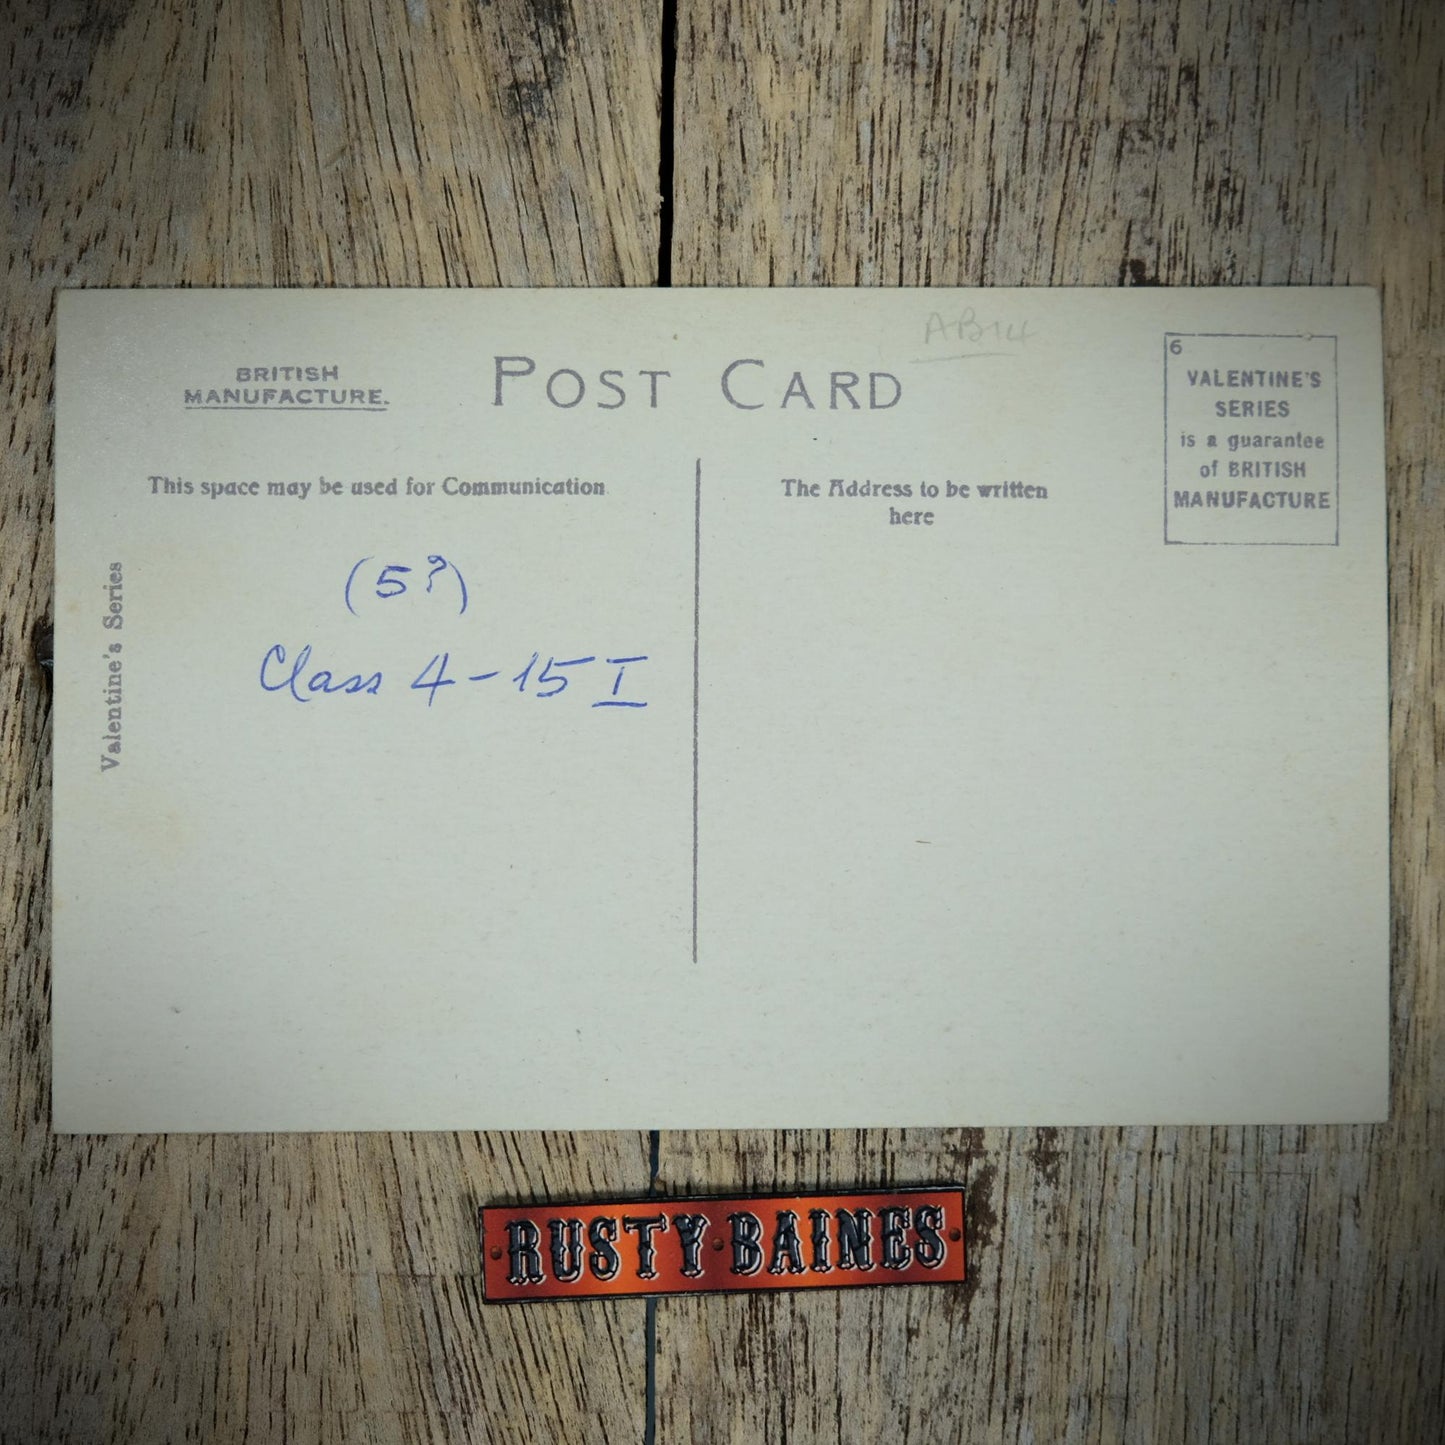 AB14
BRITISH
MANUFACTURE.
POST CARD
6
VALENTINE'S
SERIES
is a guarantee
of BRITISH
MANUFACTURE
This space may be used for Communication
The Address to be written
here
(5?)
Class 4-15 I
Valentine's Series
RUSTY·BAINES